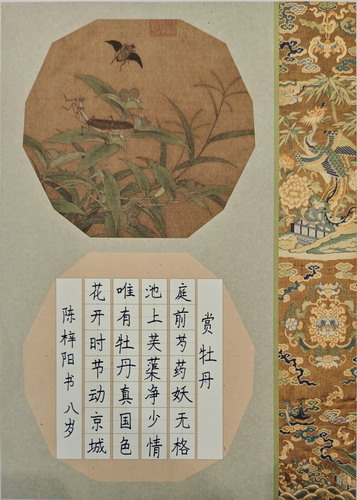 赏牡丹
庭前芍药妖无格
池上芙蕖净少情
唯有牡丹真国色
花开时节动京城
陈梓阳书 八岁